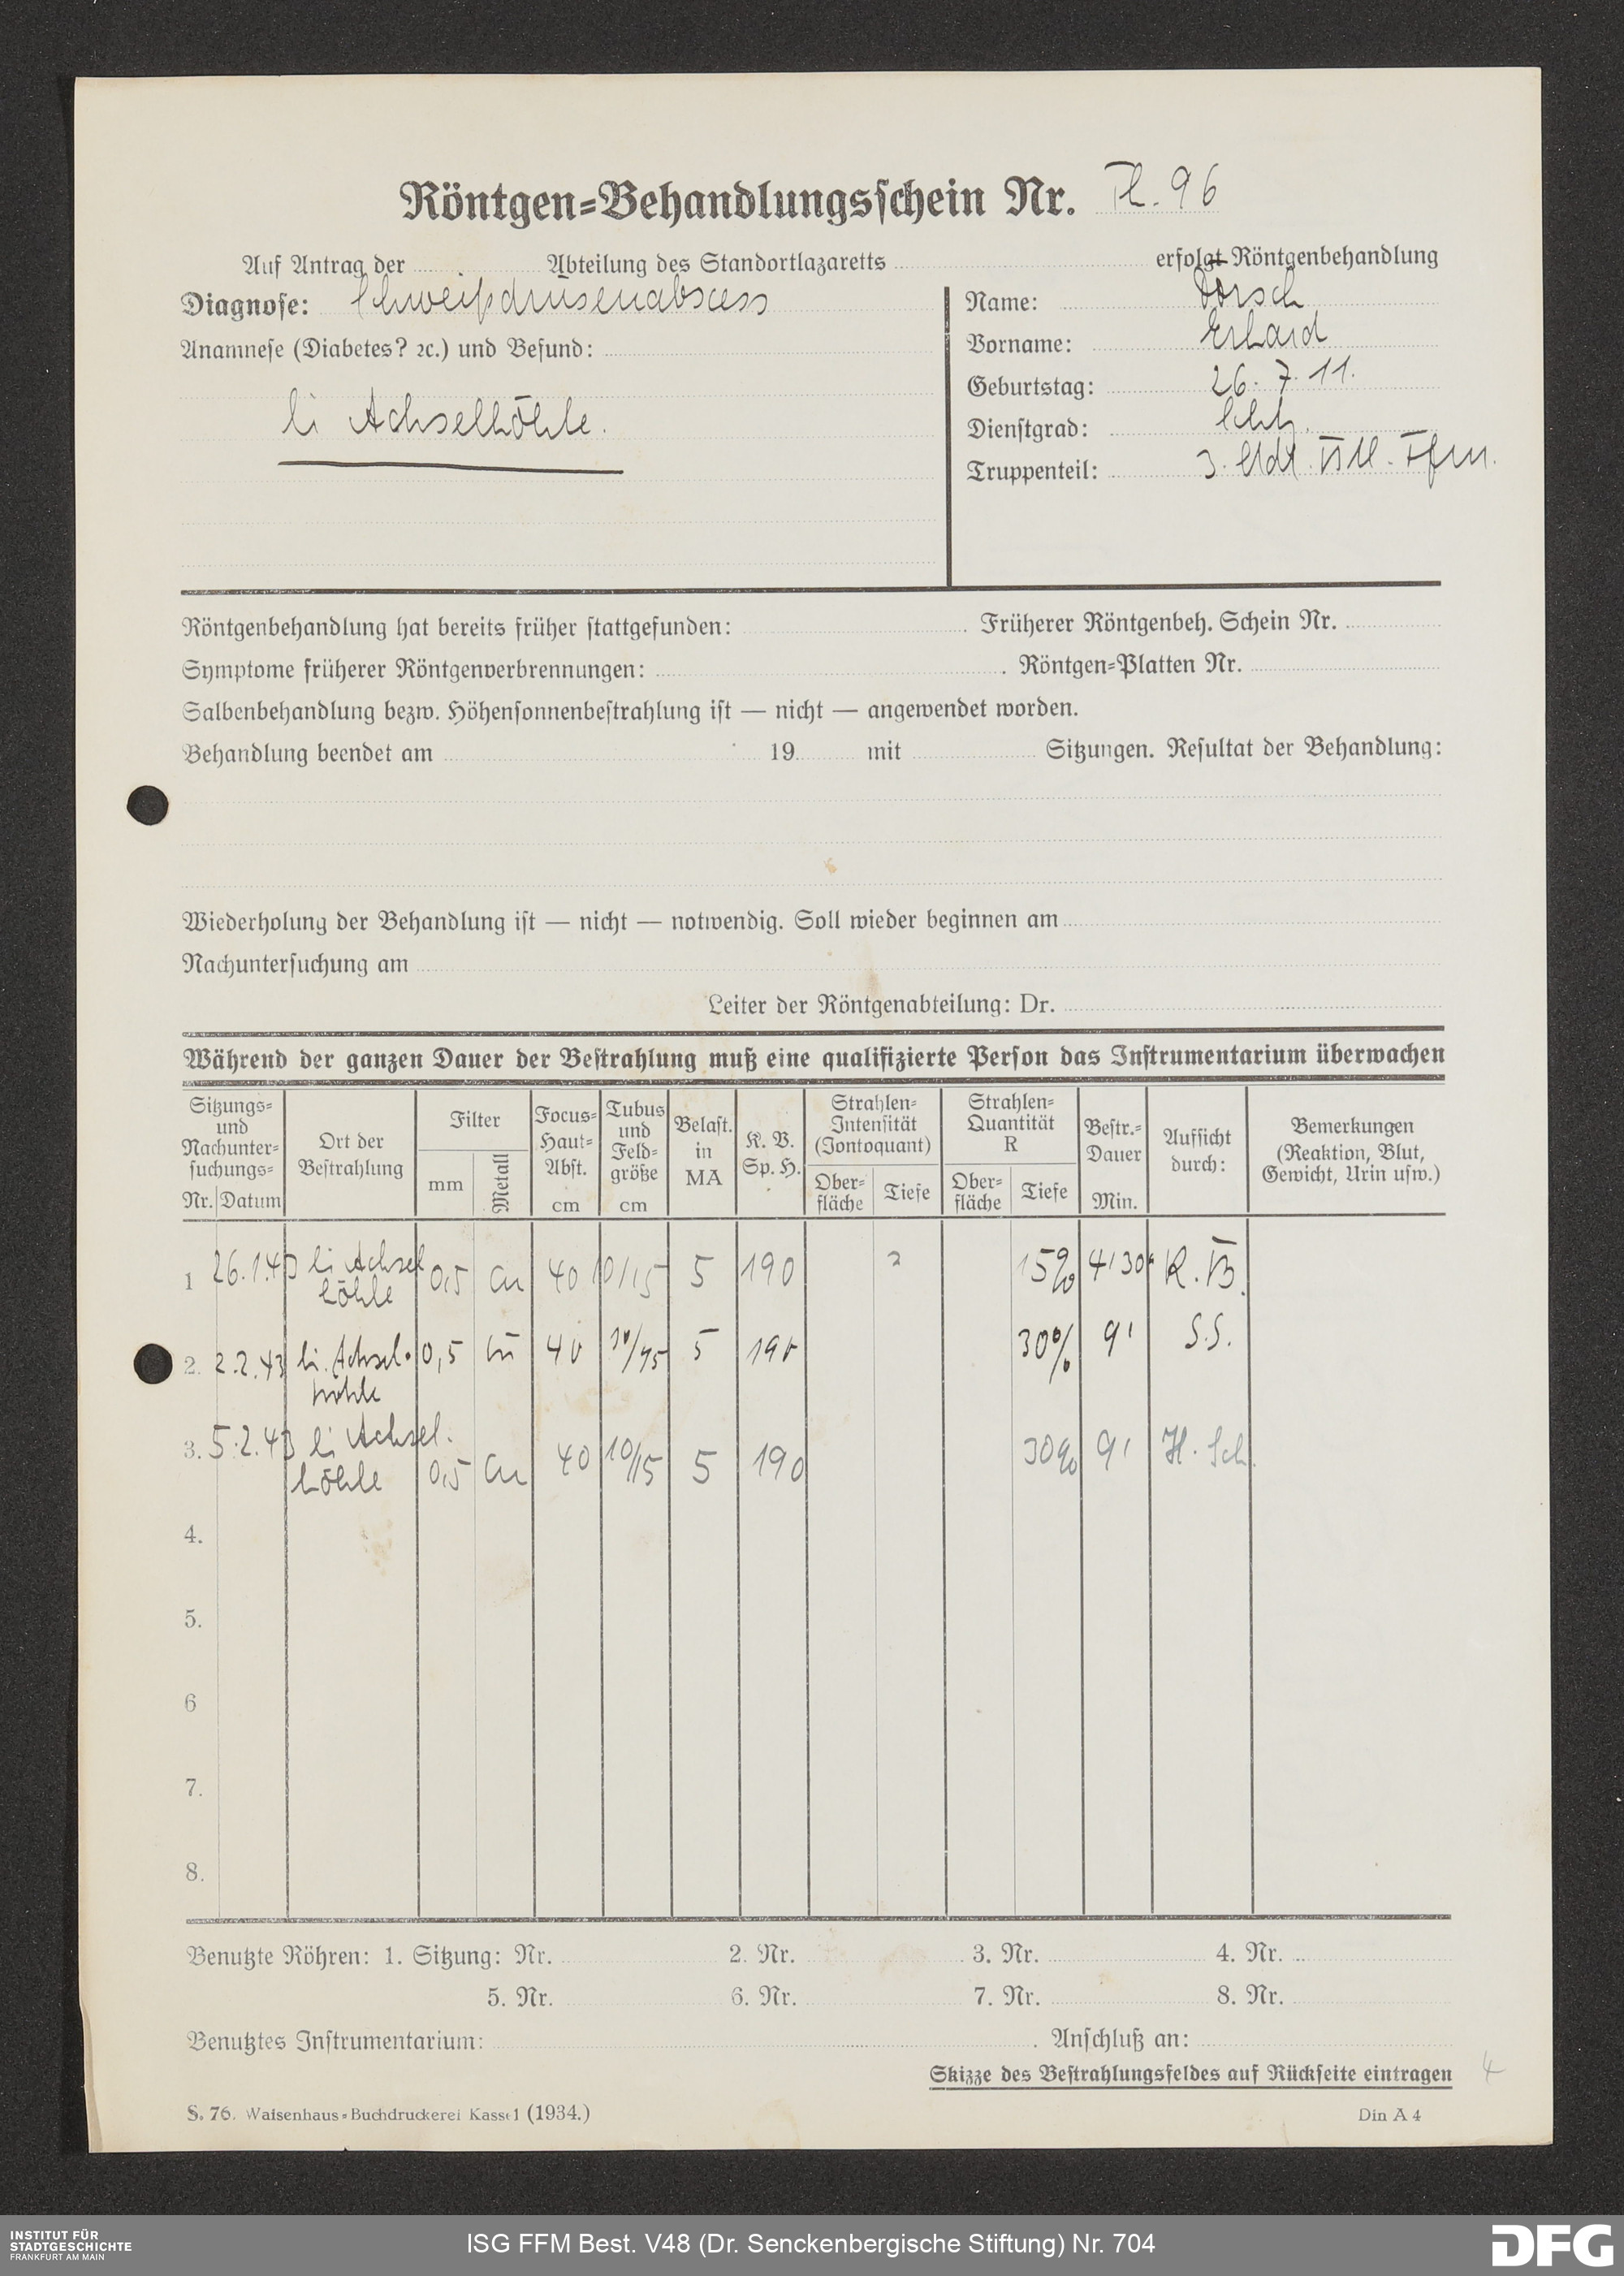 Röntgen=Behandlungsschein Nr. Pl. 96
Auf Antrag der Abteilung des Standortlazaretts erfolgt Röntgenbehandlung
Diagnose: Schweißdrüsenabscess
Name: Dorsch
Anamnese (Diabetes? ꝛc.) und Befund:
Vorname: Erhard
li Achselhöhle.
Geburtstag: 26. 7. 11.
Dienstgrad: Schtz.
Truppenteil: 3.
Röntgenbehandlung hat bereits früher stattgefunden: . Früherer Röntgenbeh. Schein Nr.
Symptome früherer Röntgenverbrennungen: . Röntgen=Platten Nr.
Salbenbehandlung bezw. Höhensonnenbestrahlung ist — nicht — angewendet worden.
Behandlung beendet am 19 mit Sitzungen. Resultat der Behandlung:
Wiederholung der Behandlung ist — nicht — notwendig. Soll wieder beginnen am
Nachuntersuchung am
Leiter der Röntgenabteilung: Dr.
Während der ganzen Dauer der Bestrahlung muß eine qualifizierte Person das Instrumentarium überwachen
Sitzungs= und Nachunter= suchungs= Nr. Datum
Ort der Bestrahlung
Filter mm Metall
Focus= Haut= Abst. cm
Tubus und Feld= größe cm
Belast. in MA
K. V. Sp. H.
Strahlen= Intensität (Iontoquant) Ober= fläche Tiefe
Strahlen= Quantität R Ober= fläche Tiefe
Bestr.= Dauer Min.
Aufsicht durch:
Bemerkungen (Reaktion, Blut, Gewicht, Urin usw.)
1 26.1.43 li Achsel höhle 0,5 Cu 40 10/15 5 190 15% 4'30" K. B.
2. 2.2.43 li. Achsel. höhle 0,5 Cu 40 10/15 5 190 30% 9' S.S.
3. 5.2.43 li Achsel. höhle 0,5 Cu 40 10/15 5 190 30% 9' H. Sch.
4.
5.
6
7.
8.
Benutzte Röhren: 1. Sitzung: Nr. 2. Nr. 3. Nr. 4. Nr.
5. Nr. 6. Nr. 7. Nr. 8. Nr.
Benutztes Instrumentarium: . Anschluß an:
Skizze des Bestrahlungsfeldes auf Rückseite eintragen
4
S. 76. Waisenhaus=Buchdruckerei Kassel (1934.) Din A 4
INSTITUT FÜR
STADTGESCHICHTE
FRANKFURT AM MAIN
ISG FFM Best. V48 (Dr. Senckenbergische Stiftung) Nr. 704
DFG